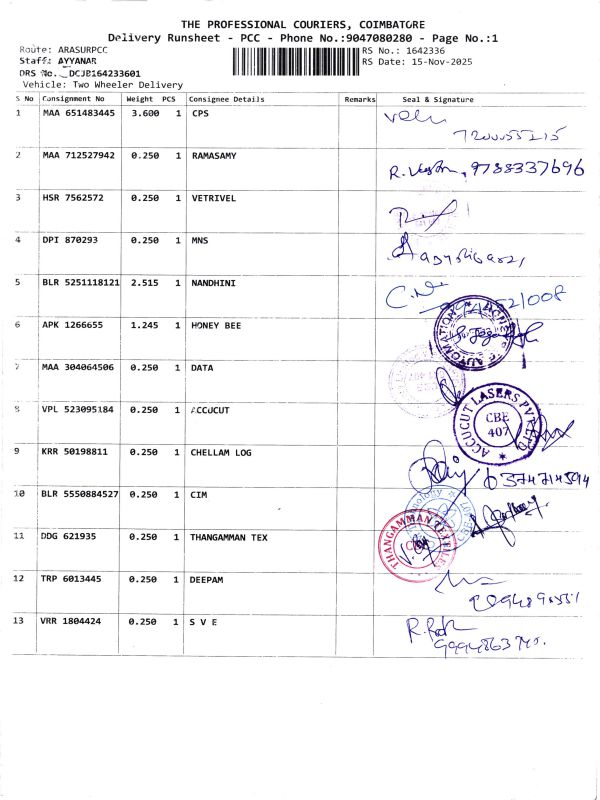 THE PROFESSIONAL COURIERS, COIMBATORE
Delivery Runsheet - PCC - Phone No.:9047080280 - Page No.:1
Route: ARASURPCC
RS No.: 1642336
Staff: AYYANAR
RS Date: 15-Nov-2025
DRS No. DCJB164233601
Vehicle: Two Wheeler Delivery
S No Consignment No Weight PCS Consignee Details Remarks Seal & Signature
1 MAA 651483445 3.600 1 CPS
2 MAA 712527942 0.250 1 RAMASAMY 9788337696
3 HSR 7562572 0.250 1 VETRIVEL
4 DPI 870293 0.250 1 MNS
5 BLR 5251118121 2.515 1 NANDHINI
6 APK 1266655 1.245 1 HONEY BEE
7 MAA 304064506 0.250 1 DATA
8 VPL 523095184 0.250 1 ACCUCUT
ACCUCUT LASERS PVT LTD
CBE
407
9 KRR 50198811 0.250 1 CHELLAM LOG
10 BLR 5550884527 0.250 1 CIM
11 DDG 621935 0.250 1 THANGAMMAN TEX
THANGAMMAN TEXTILES
12 TRP 6013445 0.250 1 DEEPAM
13 VRR 1804424 0.250 1 S V E